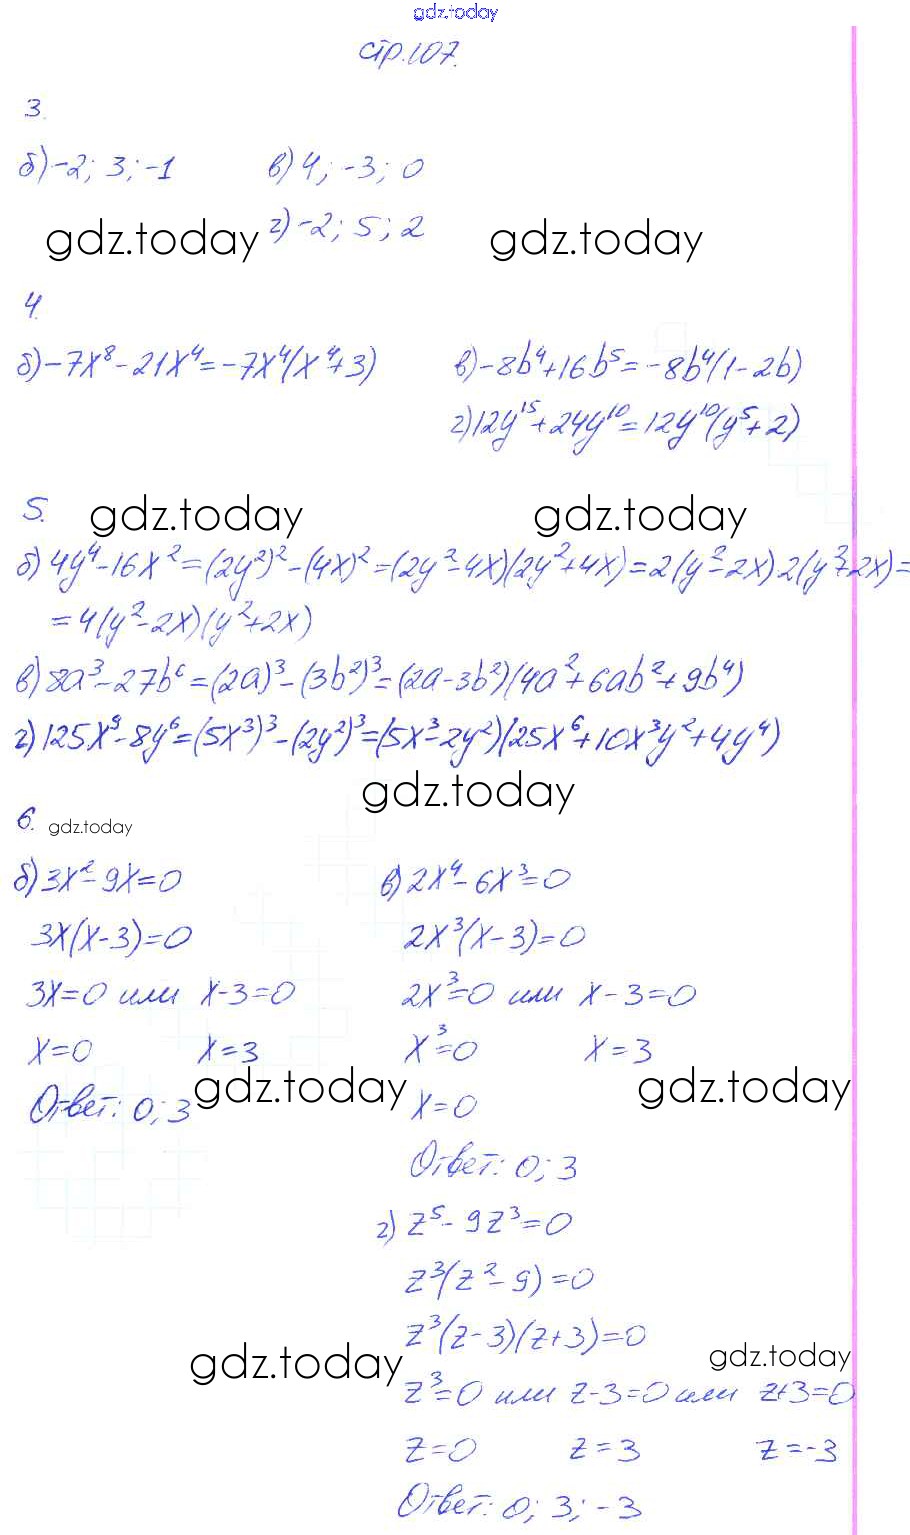 gdz.today
стр.107.
3.
б) -2; 3; -1 в) 4; -3; 0
г) -2; 5; 2
gdz.today gdz.today
4.
б) -7x⁸ - 21x⁴ = -7x⁴(x⁴+3) в) -8b⁴+16b⁵ = -8b⁴(1-2b)
г) 12y¹⁵ + 24y¹⁰ = 12y¹⁰(y⁵+2)
5.
gdz.today gdz.today
б) 4y⁴ - 16x² = (2y²)² - (4x)² = (2y²-4x)(2y²+4x) = 2(y²-2x)2(y²+2x) =
= 4(y²-2x)(y²+2x)
в) 8a³ - 27b⁶ = (2a)³ - (3b²)³ = (2a-3b²)(4a²+6ab²+9b⁴)
г) 125x⁹ - 8y⁶ = (5x³)³ - (2y²)³ = (5x³-2y²)(25x⁶+10x³y²+4y⁴)
gdz.today
6. gdz.today
б) 3x² - 9x = 0 в) 2x⁴ - 6x³ = 0
3x(x-3) = 0 2x³(x-3) = 0
3x = 0 или x-3 = 0 2x³ = 0 или x-3 = 0
x = 0 x = 3 x³ = 0 x = 3
gdz.today gdz.today
Ответ: 0; 3 x = 0
Ответ: 0; 3
г) z⁵ - 9z³ = 0
z³(z²-9) = 0
z³(z-3)(z+3) = 0
gdz.today gdz.today
z³ = 0 или z-3 = 0 или z+3 = 0
z = 0 z = 3 z = -3
Ответ: 0; 3; -3